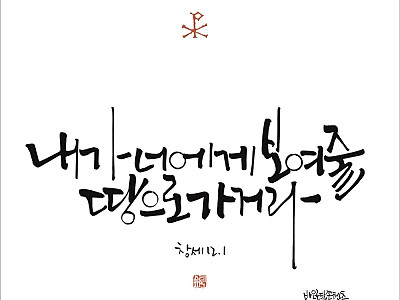 내가 너에게 보여줄
땅으로 가거라
창세 12.1